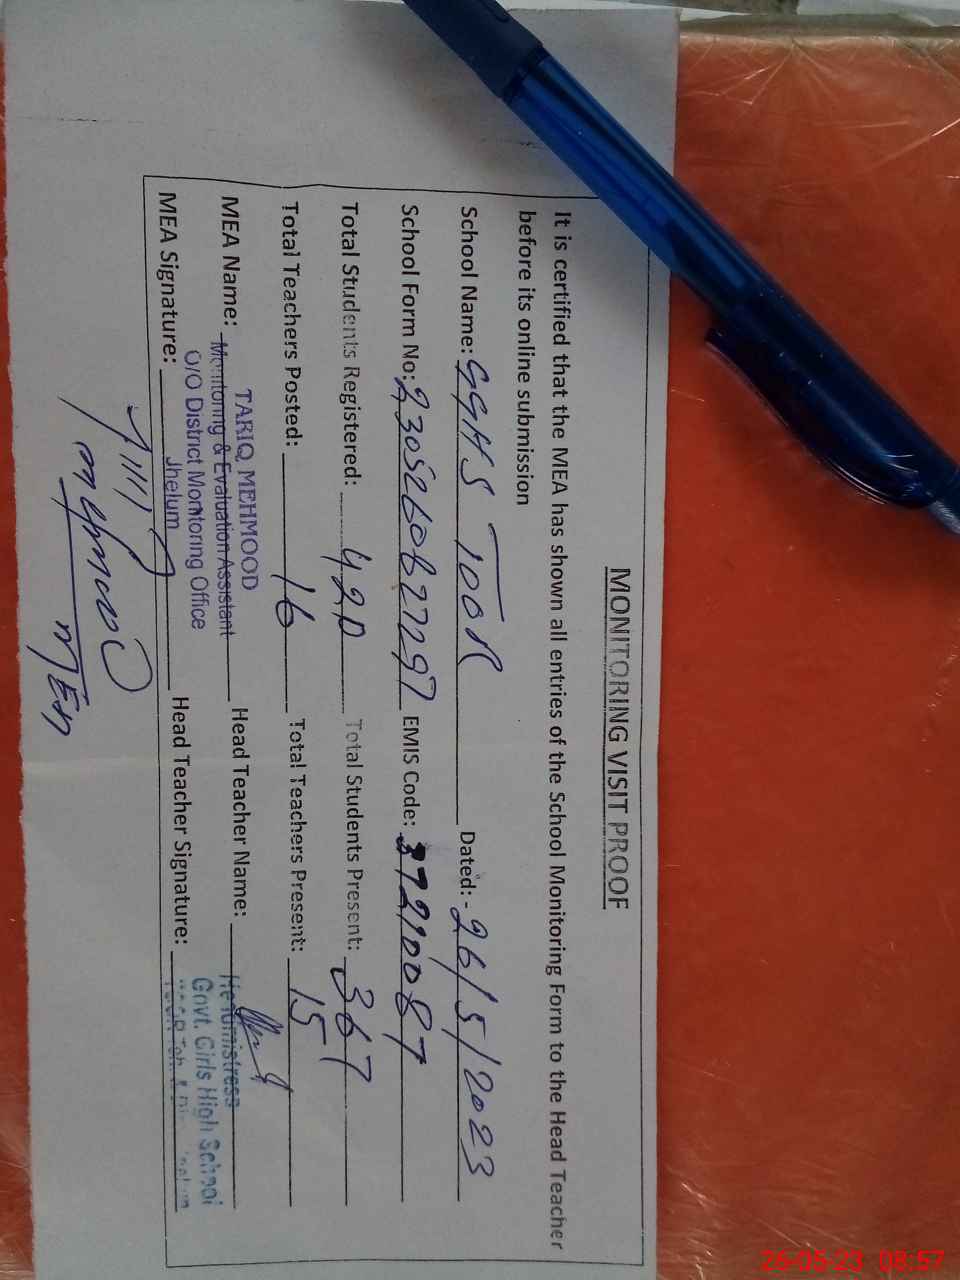 MONITORING VISIT PROOF
It is certified that the MEA has shown all entries of the School Monitoring Form to the Head Teacher
before its online submission
School Name: GGHS TOOR Dated:- 26/5/2023
School Form No: 2305260627297 EMIS Code: 37210087
Total Students Registered: 420 Total Students Present: 367
Total Teachers Posted: 16 Total Teachers Present: 15
TARIQ MEHMOOD
MEA Name: Monitoring & Evaluation Assistant Head Teacher Name: Headmistress
O/O District Monitoring Office Govt. Girls High School
MEA Signature: Jhelum Head Teacher Signature:
MEA
26-05-23 08:57